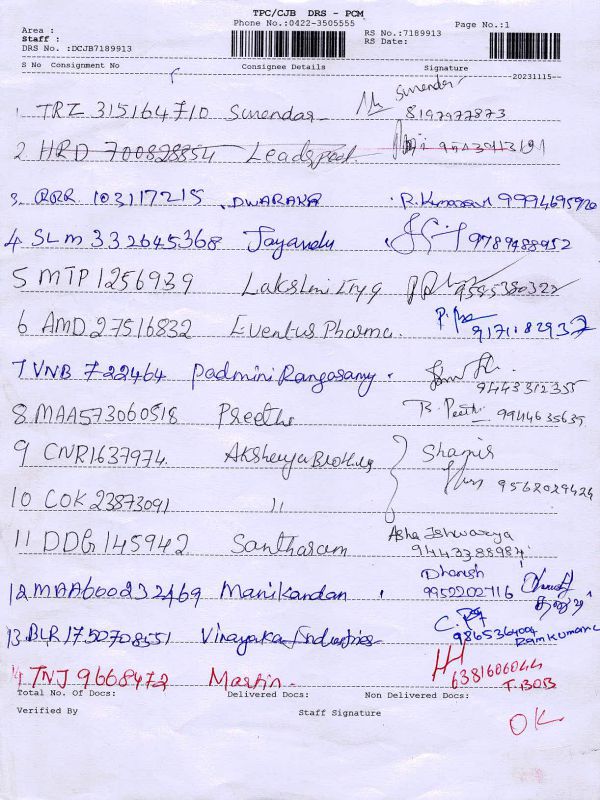 TPC/CJB DRS - PCM
Area : Phone No.:0422-3505555 Page No.:1
Staff : RS No.:7189913
DRS No. :DCJB7189913 RS Date:
S No Consignment No Consignee Details Signature
--20231115--
1 TRZ 315164710 Surendar Surendar
8197977873
2 HRD 700828854
3 RRR 103117215 DWARAKA R. Kumaran 9994695920
4 SLM 332645368 Jayandu 9789488952
5 MTP 1256939 Lakshmi
6 AMD 27516832 Eventus Pharma. 9171182937
7 VNB 722464 Padmini Rangasamy
9443312355
8 MAA573060518 Preethi B. Preethi 9944635635
9 CNR1637974 Shamir
9562029424
10 COK 23873091 11
11 DDG 145942 Santharam Asha Ishwarya
9443388984
12 MAA600232469 Manikandan Dharish
9952202716
13 BLR 1750708551 Vinayaka Industries
Ramkumar.C
14 TNJ 9668472 Martin 6381606044
T. BOB
Total No. Of Docs: Delivered Docs: Non Delivered Docs:
Verified By Staff Signature
OK